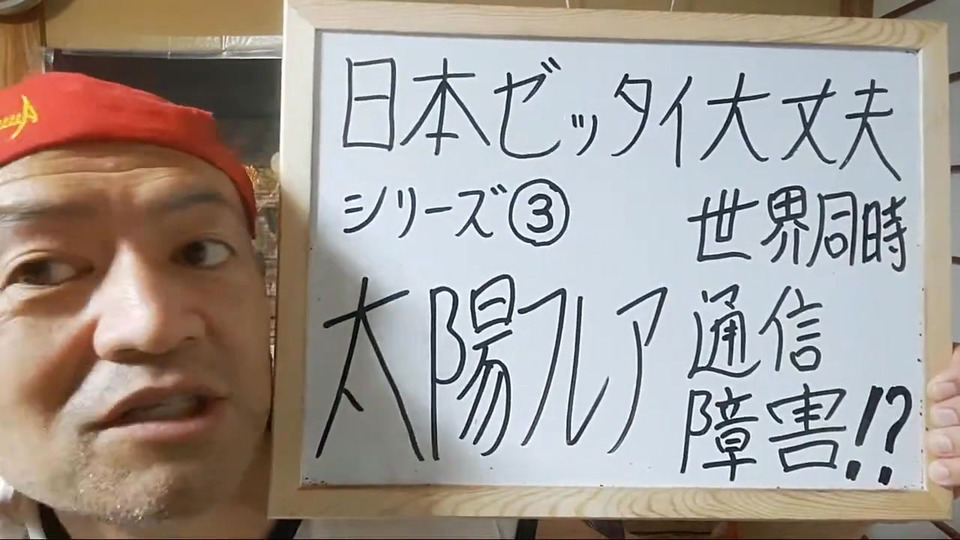 日本ゼッタイ大丈夫
シリーズ③
太陽フレア
世界同時
通信
障害!?